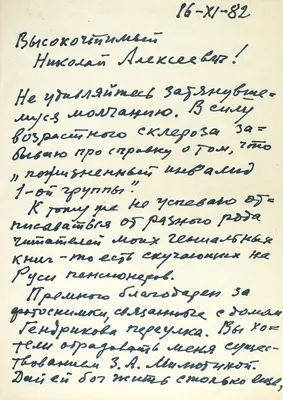 16-XI-82
Высокочтимый
Николай Алексеевич!
Не удивляйтесь затянувше-
муся молчанию. В силу
возрастного склероза за-
бываю про справку о том, что
"пожизненный инвалид
1-ой группы".
К тому же не успеваю от-
писаваться от разного рода
читателей моих гениальных
книг - то есть скучающих на
Руси пенсионеров.
Премного благодарен за
фотоснимки, связанные с домом
Гендрикова переулка. Вы хо-
тели обрадовать меня сущес-
твованием З. А. Милютиной.
Дай ей бог жить столько еще,